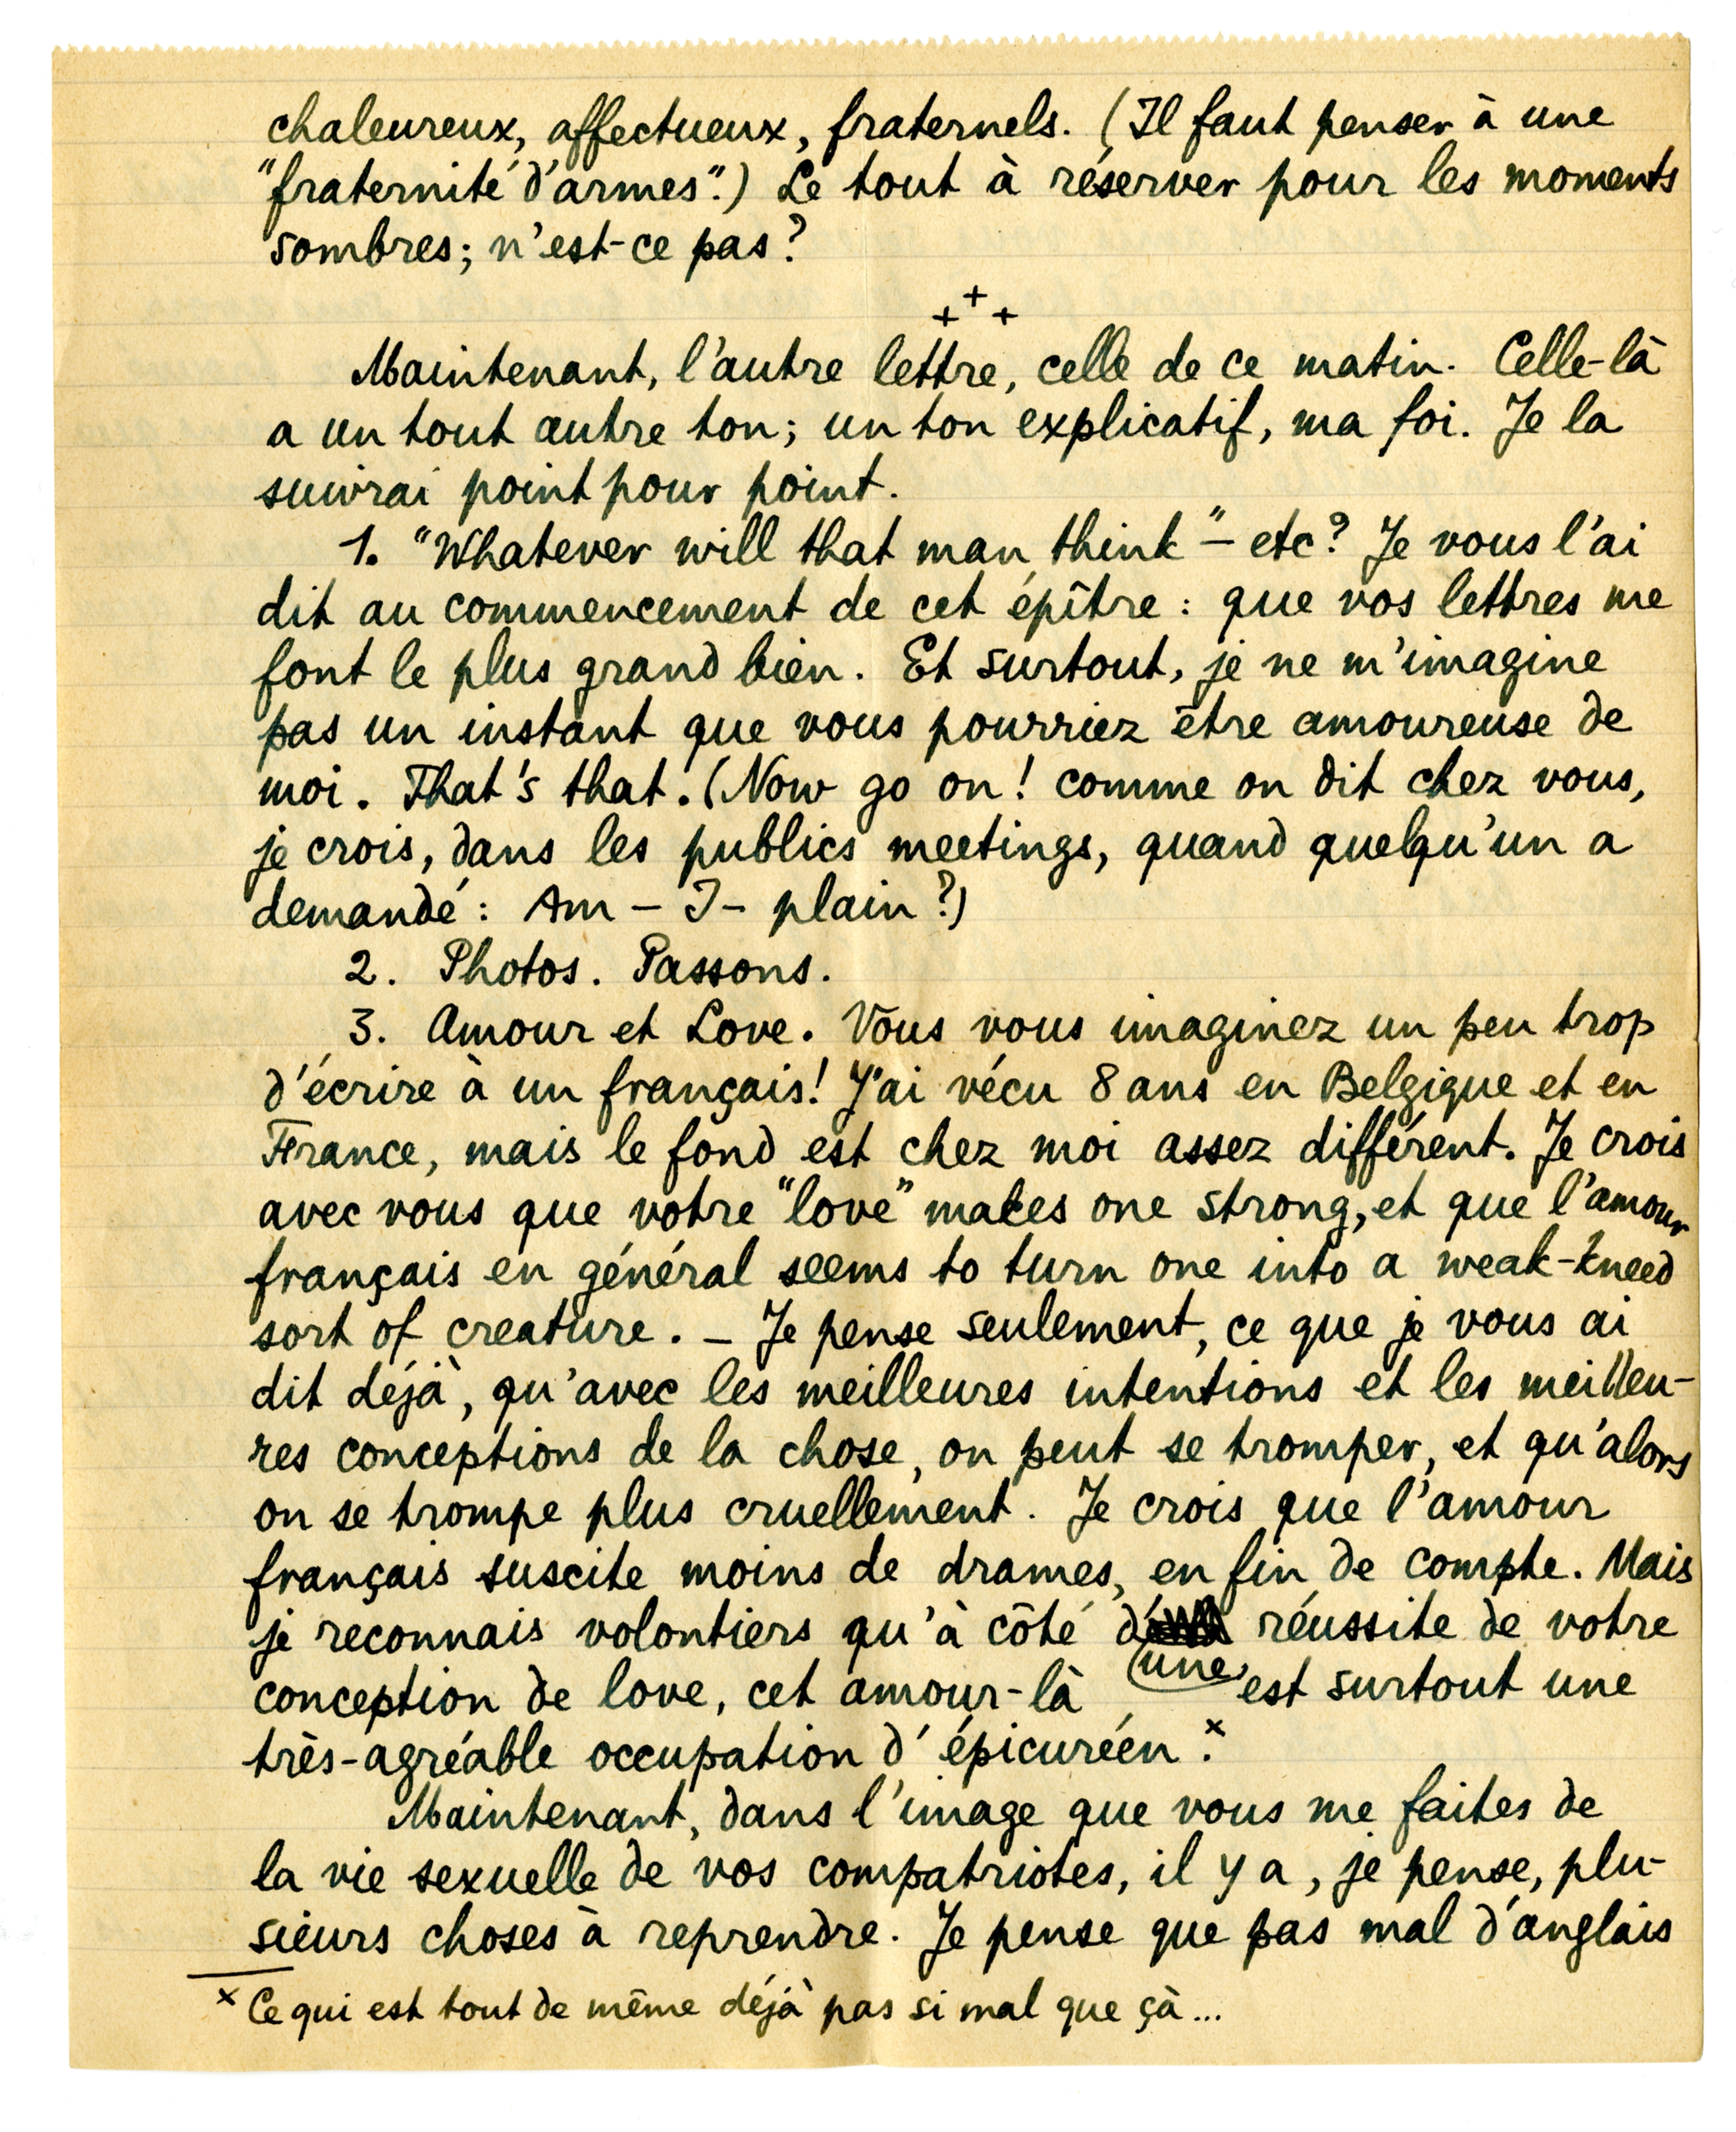 chaleureux, affectueux, fraternels. (Il faut penser à une
"fraternité d'armes".) Le tout à réserver pour les moments
sombres; n'est-ce pas?
+ + +
Maintenant, l'autre lettre, celle de ce matin. Celle-là
a un tout autre ton; un ton explicatif, ma foi. Je la
suivrai point pour point.
1. "Whatever will that man think" – etc? Je vous l'ai
dit au commencement de cet épître: que vos lettres me
font le plus grand bien. Et surtout, je ne m'imagine
pas un instant que vous pourriez être amoureuse de
moi. That's that. (Now go on! comme on dit chez vous,
je crois, dans les publics meetings, quand quelqu'un a
demandé: Am – I – plain?)
2. Photos. Passons.
3. Amour et Love. Vous vous imaginez un peu trop
d'écrire à un français! J'ai vécu 8 ans en Belgique et en
France, mais le fond est chez moi assez différent. Je crois
avec vous que votre "love" makes one strong, et que l'amour
français en général seems to turn one into a weak-kneed
sort of creature. – Je pense seulement, ce que je vous ai
dit déjà, qu'avec les meilleures intentions et les meilleu-
res conceptions de la chose, on peut se tromper, et qu'alors
on se trompe plus cruellement. Je crois que l'amour
français suscite moins de drames, en fin de compte. Mais
je reconnais volontiers qu'à côté d'une réussite de votre
conception de love, cet amour-là est surtout une
très-agréable occupation d'épicuréen.x
Maintenant, dans l'image que vous me faites de
la vie sexuelle de vos compatriotes, il y a, je pense, plu-
sieurs choses à reprendre. Je pense que pas mal d'anglais
x Ce qui est tout de même déjà pas si mal que çà...